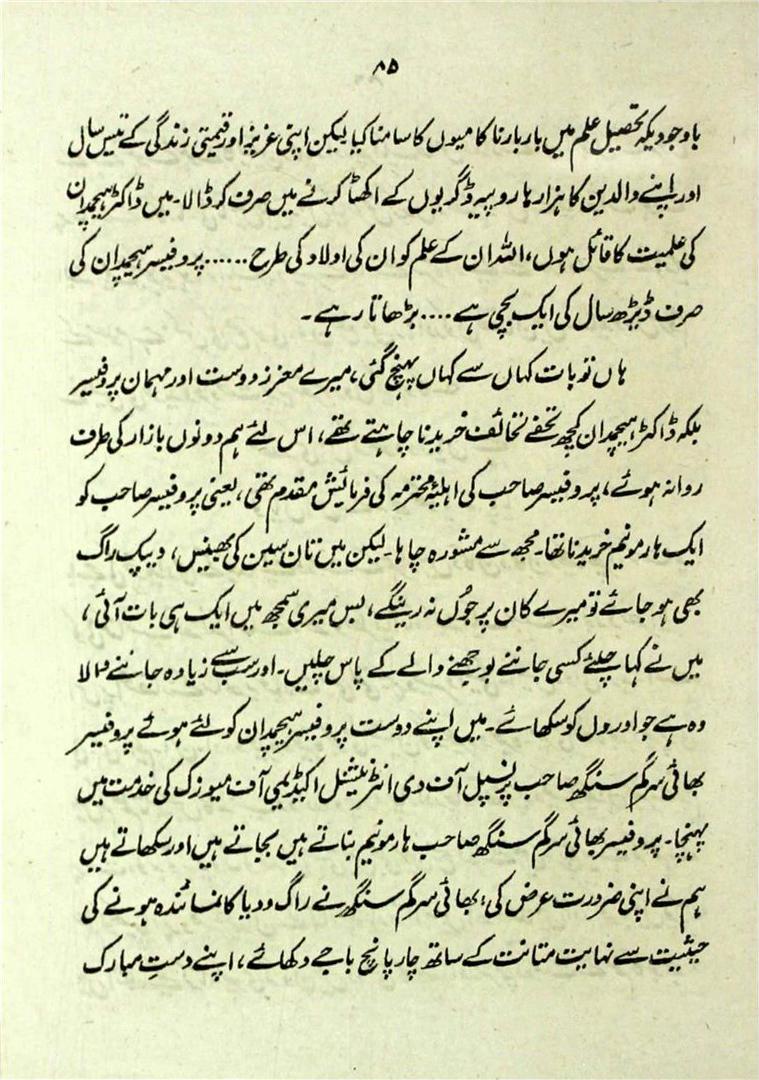 ۸۵
باوجودیکہ تحصیل علم میں بار بار ناکامیوں کا سامنا کیا لیکن اپنی عزیز اور قیمتی زندگی کے تیس سال
اور اپنے والدین کا ہزارہا روپیہ ڈگریوں کے اکھٹا کرنے میں صرف کر ڈالا۔ میں ڈاکٹر ہیچمدان
کی علمیت کا قائل ہوں، اللہ ان کے علم کو ان کی اولاد کی طرح ...... پروفیسر ہیچمدان کی
صرف ڈیڑھ سال کی ایک بچی ہے .... بڑھاتا رہے۔
ہاں تو بات کہاں سے کہاں پہنچ گئی، میرے معزز دوست اور مہمان پروفیسر
بلکہ ڈاکٹر ہیچمدان کچھ تحفے تحائف خریدنا چاہتے تھے، اس لئے ہم دونوں بازار کی طرف
روانہ ہوئے، پروفیسر صاحب کی اہلیۂ محترمہ کی فرمائیش مقدم تھی، یعنی پروفیسر صاحب کو
ایک ہارمونیم خریدنا تھا۔ مجھ سے مشورہ چاہا۔ لیکن میں تان سین کی بھینس، دیپک راگ
بھی ہو جائے تو میرے کان پر جوں نہ رینگے، بس میری سمجھ میں ایک ہی بات آئی،
میں نے کہا چلئے کسی جاننے بوجھنے والے کے پاس چلیں۔ اور سب سے زیادہ جاننے والا
وہ ہے جو اوروں کو سکھائے۔ میں اپنے دوست پروفیسر ہیچمدان کو لئے ہوئے پروفیسر
بھائی سرگم سنگھ صاحب پرنسپل آف دی انٹرنیشنل اکیڈیمی آف میوزک کی خدمت میں
پہنچا۔ پروفیسر بھائی سرگم سنگھ صاحب ہارمونیم بناتے ہیں بجاتے ہیں اور سکھاتے ہیں
ہم نے اپنی ضرورت عرض کی، بھائی سرگم سنگھ نے راگ ودیا کا نمائندہ ہونے کی
حیثیت سے نہایت متانت کے ساتھ چار پانچ باجے دکھائے، اپنے دستِ مبارک